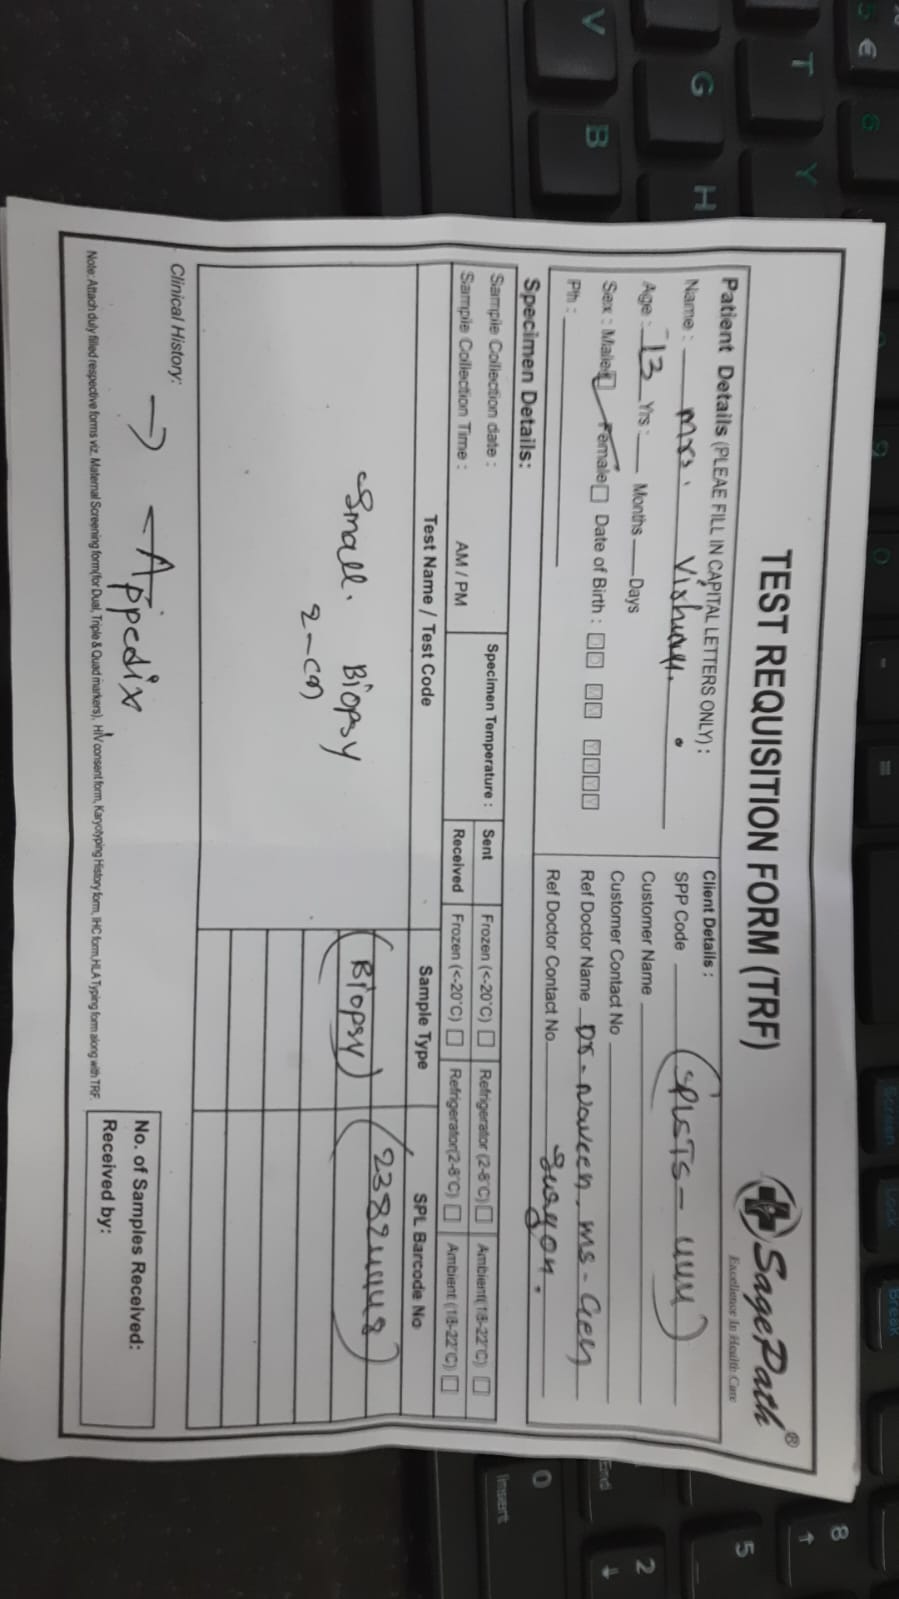 TEST REQUISITION FORM (TRF)
SagePath®
Excellence In Health Care
Patient Details (PLEAE FILL IN CAPITAL LETTERS ONLY) :
Name :
Age : 13 Yrs : Months Days
Sex : Male Female Date of Birth : DD MM YYYY
Ph :
Client Details :
SPP Code
Customer Name
Customer Contact No
Ref Doctor Name Dr - Naveen. MS - Gen
Ref Doctor Contact No. Surgon.
Specimen Details:
Sample Collection date :
Sample Collection Time : AM / PM
Specimen Temperature :
Sent Frozen (<-20°C) Refrigerator (2-8°C) Ambient(18-22°C)
Received Frozen (<-20°C) Refrigerator(2-8°C) Ambient (18-22°C)
Test Name / Test Code Sample Type SPL Barcode No
Small. Biopsy
(Biopsy)
Clinical History:
→ - Appedix
No. of Samples Received:
Received by:
Note: Attach duly filled respective forms viz. Maternal Screening form(for Dual, Triple & Quad markers), HIV consent form, Karyotyping History form, IHC form, HLA Typing form along with TRF.
V
B
G
H
T
Y
5
€
6
9
0
-
=
Screen
Lock
Break
Insert
0
End
2
5
8